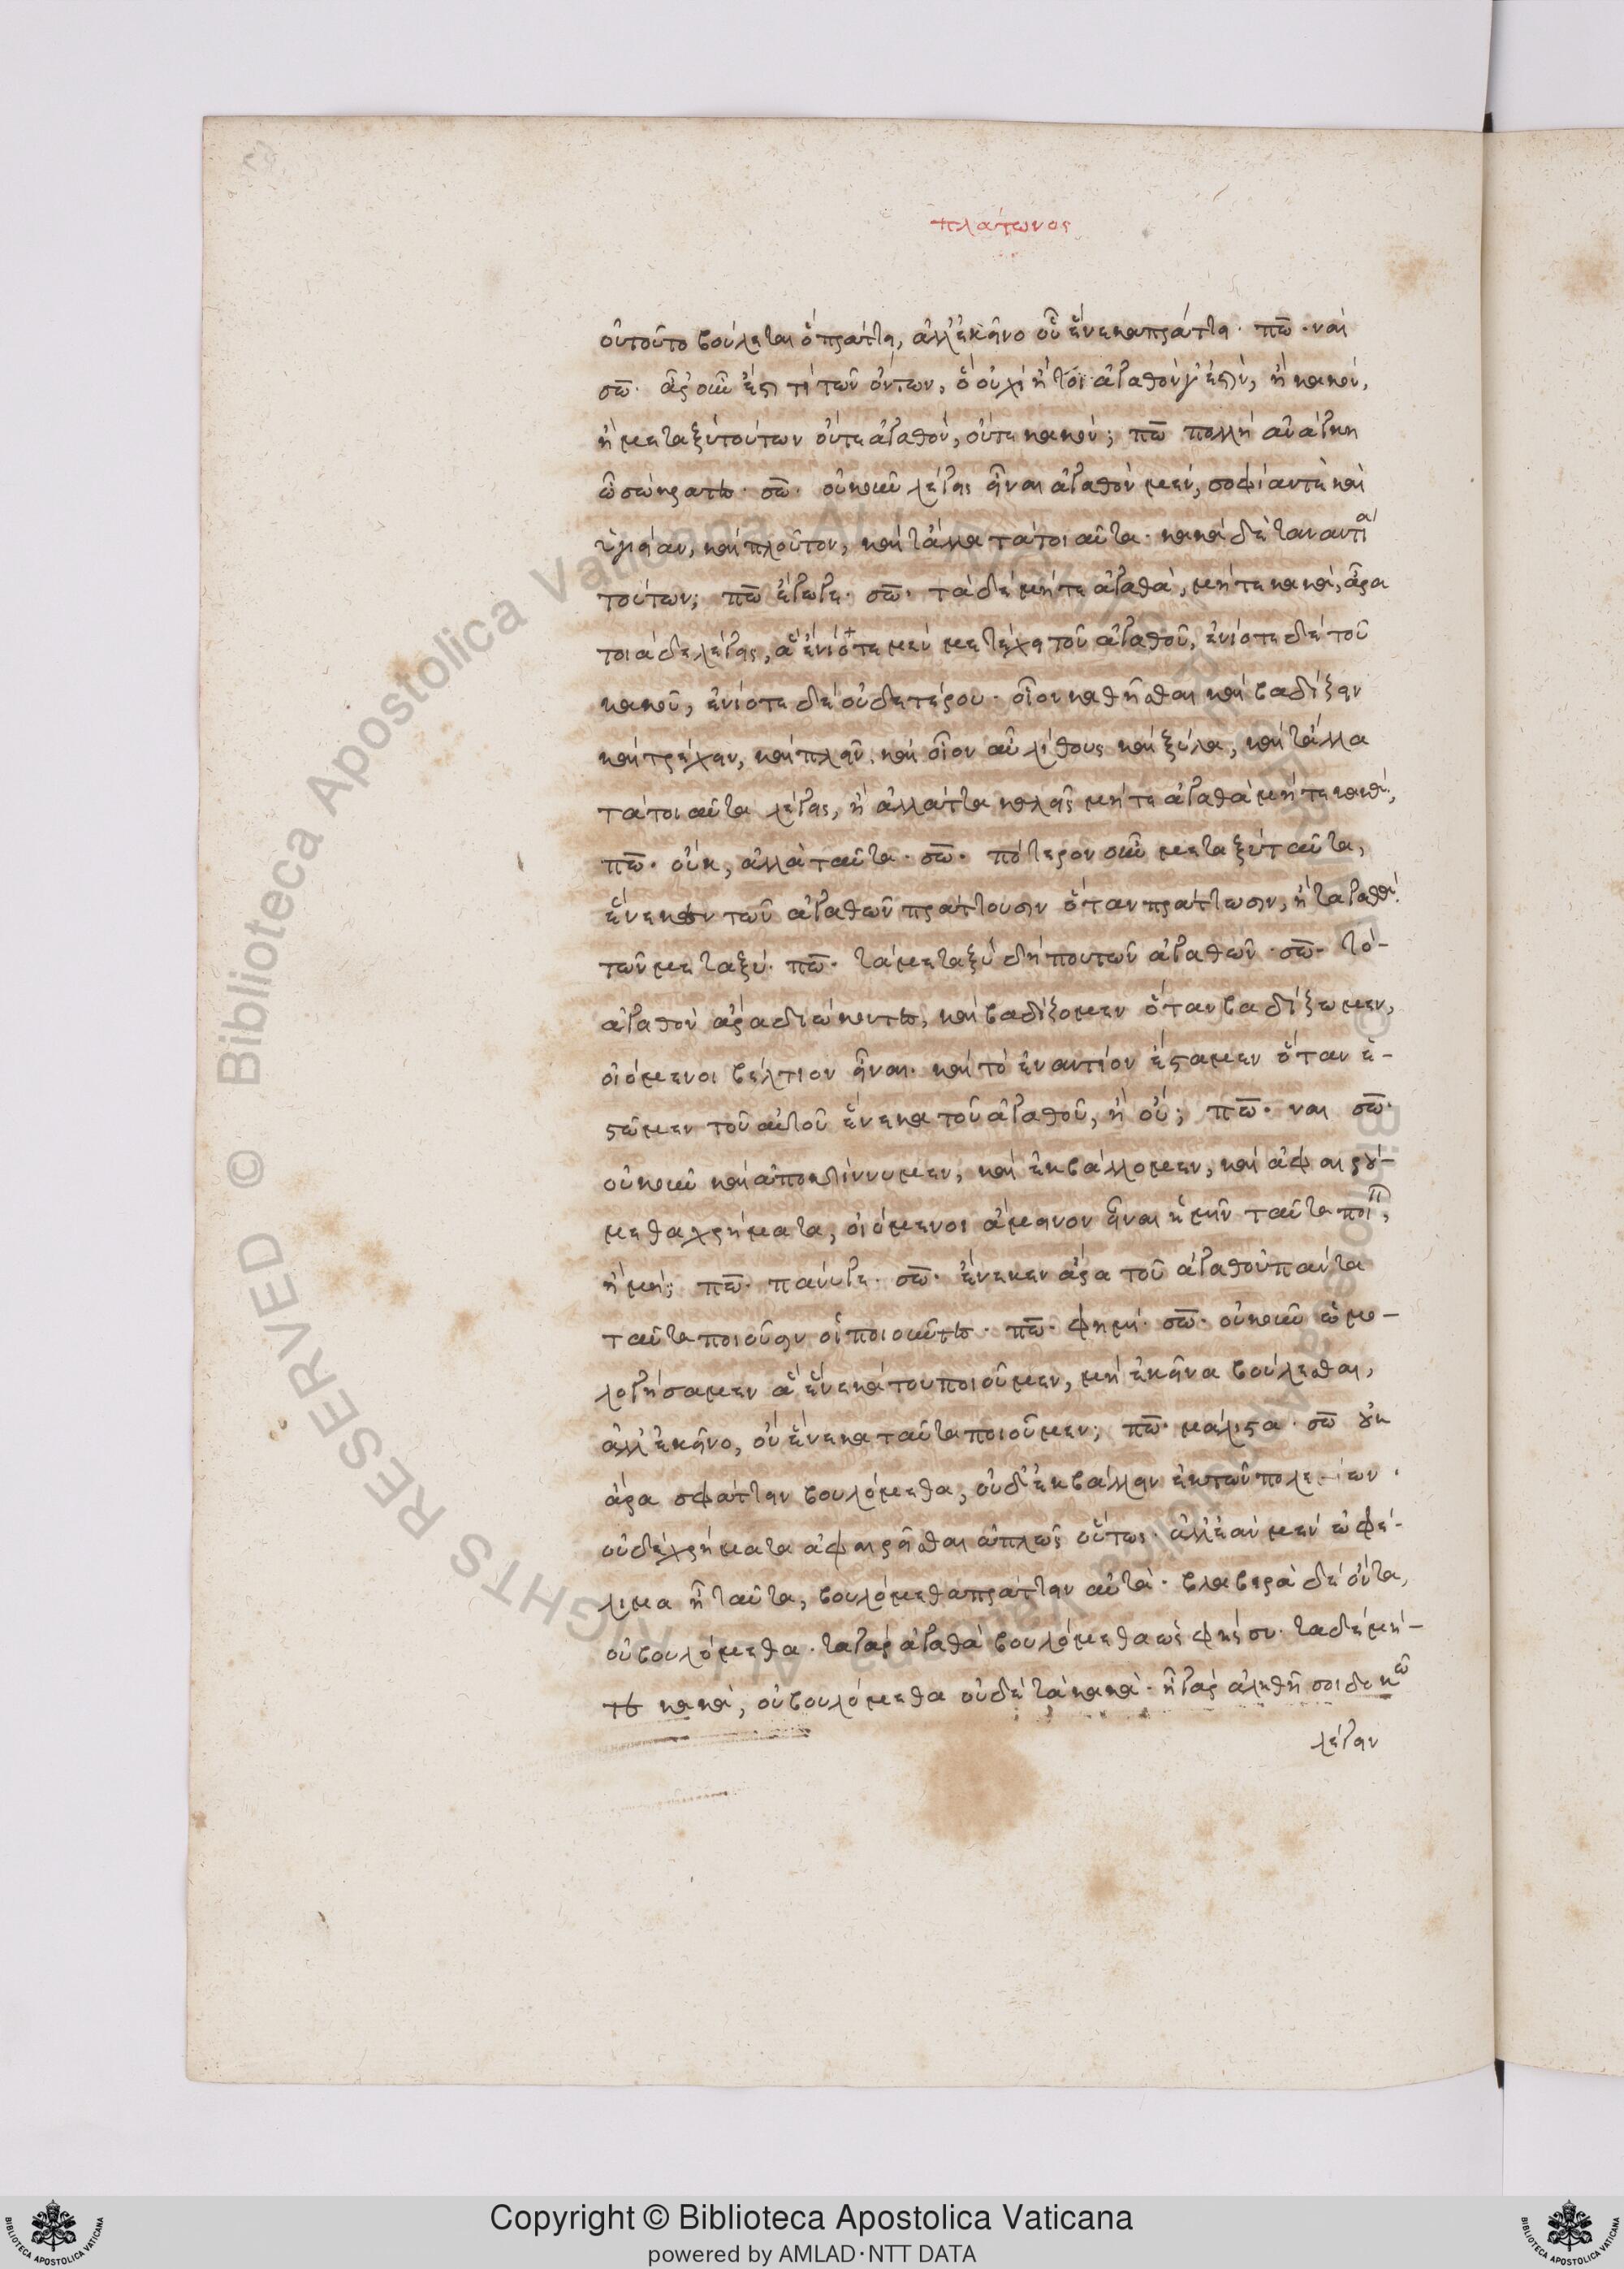 πλάτωνος
οὐ τοῦτο βούλεται ὃ πράττει, ἀλλ' ἐκεῖνο οὗ ἕνεκα πράττει· πῶ· ναί
σω· ἆρ' οὖν ἔστι τι τῶν ὄντων, ὃ οὐχὶ ἤτοι ἀγαθόν γ' ἐστίν, ἢ κακόν,
ἢ μεταξὺ τούτων οὔτε ἀγαθόν, οὔτε κακόν; πω πολλὴ ἀνάγκη
ὦ σώκρατες· σω· οὐκοῦν λέγεις εἶναι ἀγαθὸν μέν, σοφίαν τὲ καὶ
ὑγιείαν, καὶ πλοῦτον, καὶ τἄλλα τὰ τοιαῦτα· κακὰ δὲ τἀναντία
τούτων; πω ἔγωγε· σω· τὰ δὲ μήτε ἀγαθὰ, μήτε κακά, ἆρα
τοιάδε λέγεις, ἃ ἐνίοτε μὲν μετέχει τοῦ ἀγαθοῦ, ἐνίοτε δὲ τοῦ
κακοῦ, ἐνίοτε δὲ οὐδετέρου· οἷον καθῆσθαι καὶ βαδίζειν
καὶ τρέχειν, καὶ πλεῖν. καὶ οἷον αὖ λίθους καὶ ξύλα, καὶ τἄλλα
τὰ τοιαῦτα λέγεις, ἢ ἀλλ' ἄττα καλεῖς μήτε ἀγαθὰ μήτε κακά,
πω· οὔκ, ἀλλὰ ταῦτα· σω· πότερον οὖν μεταξὺ ταῦτα,
ἕνεκεν τῶν ἀγαθῶν πράττουσιν ὅταν πράττωσιν, ἢ τἀγαθὰ
τῶν μεταξύ· πω· τὰ μεταξὺ δήπου τῶν ἀγαθῶν· σω· τὸ-
ἀγαθὸν ἄρα διώκοντες, καὶ βαδίζομεν ὅταν βαδίζωμεν,
οἰόμενοι βέλτιον εἶναι· καὶ τὸ ἐναντίον ἕσταμεν ὅταν ἑ-
στῶμεν τοῦ αὐτοῦ ἕνεκα τοῦ ἀγαθοῦ, ἢ οὔ; πω· ναι σω·
οὐκοῦν καὶ ἀποκτίννυμεν, καὶ ἐκβάλλομεν, καὶ ἀφαιρού-
μεθα χρήματα, οἰόμενοι ἄμεινον εἶναι ἡμῖν ταῦτα ποιεῖν,
ἢ μή; πω· πάνυ γε· σω· ἕνεκεν ἄρα τοῦ ἀγαθοῦ πάντα
ταῦτα ποιοῦσιν οἱ ποιοῦντες· πω· φημί· σω· οὐκοῦν ὡμο-
λογήσαμεν ἃ ἕνεκά του ποιοῦμεν, μὴ ἐκεῖνα βούλεσθαι,
ἀλλ' ἐκεῖνο, οὗ ἕνεκα ταῦτα ποιοῦμεν; πω· μάλιστα· σω οὐκ
ἄρα σφάττειν βουλόμεθα, οὐδ' ἐκβάλλειν ἐκ τῶν πολεμίων·
οὐδὲ χρήματα ἀφαιρεῖσθαι ἁπλῶς οὕτως· ἀλλ' ἐὰν μὲν ὠφέ-
λιμα ᾖ ταῦτα, βουλόμεθα πράττειν αὐτά· βλαβερὰ δὲ ὄντα,
οὐ βουλόμεθα· τὰ γὰρ ἀγαθὰ βουλόμεθα ὡς φὴς συ· τὰ δὲ μή-
τε κακά, οὐ βουλόμεθα οὐδὲ τὰ κακά· ἦ γὰρ ἀληθῆ σοι δοκῶ
λέγειν
Copyright © Biblioteca Apostolica Vaticana
powered by AMLAD·NTT DATA